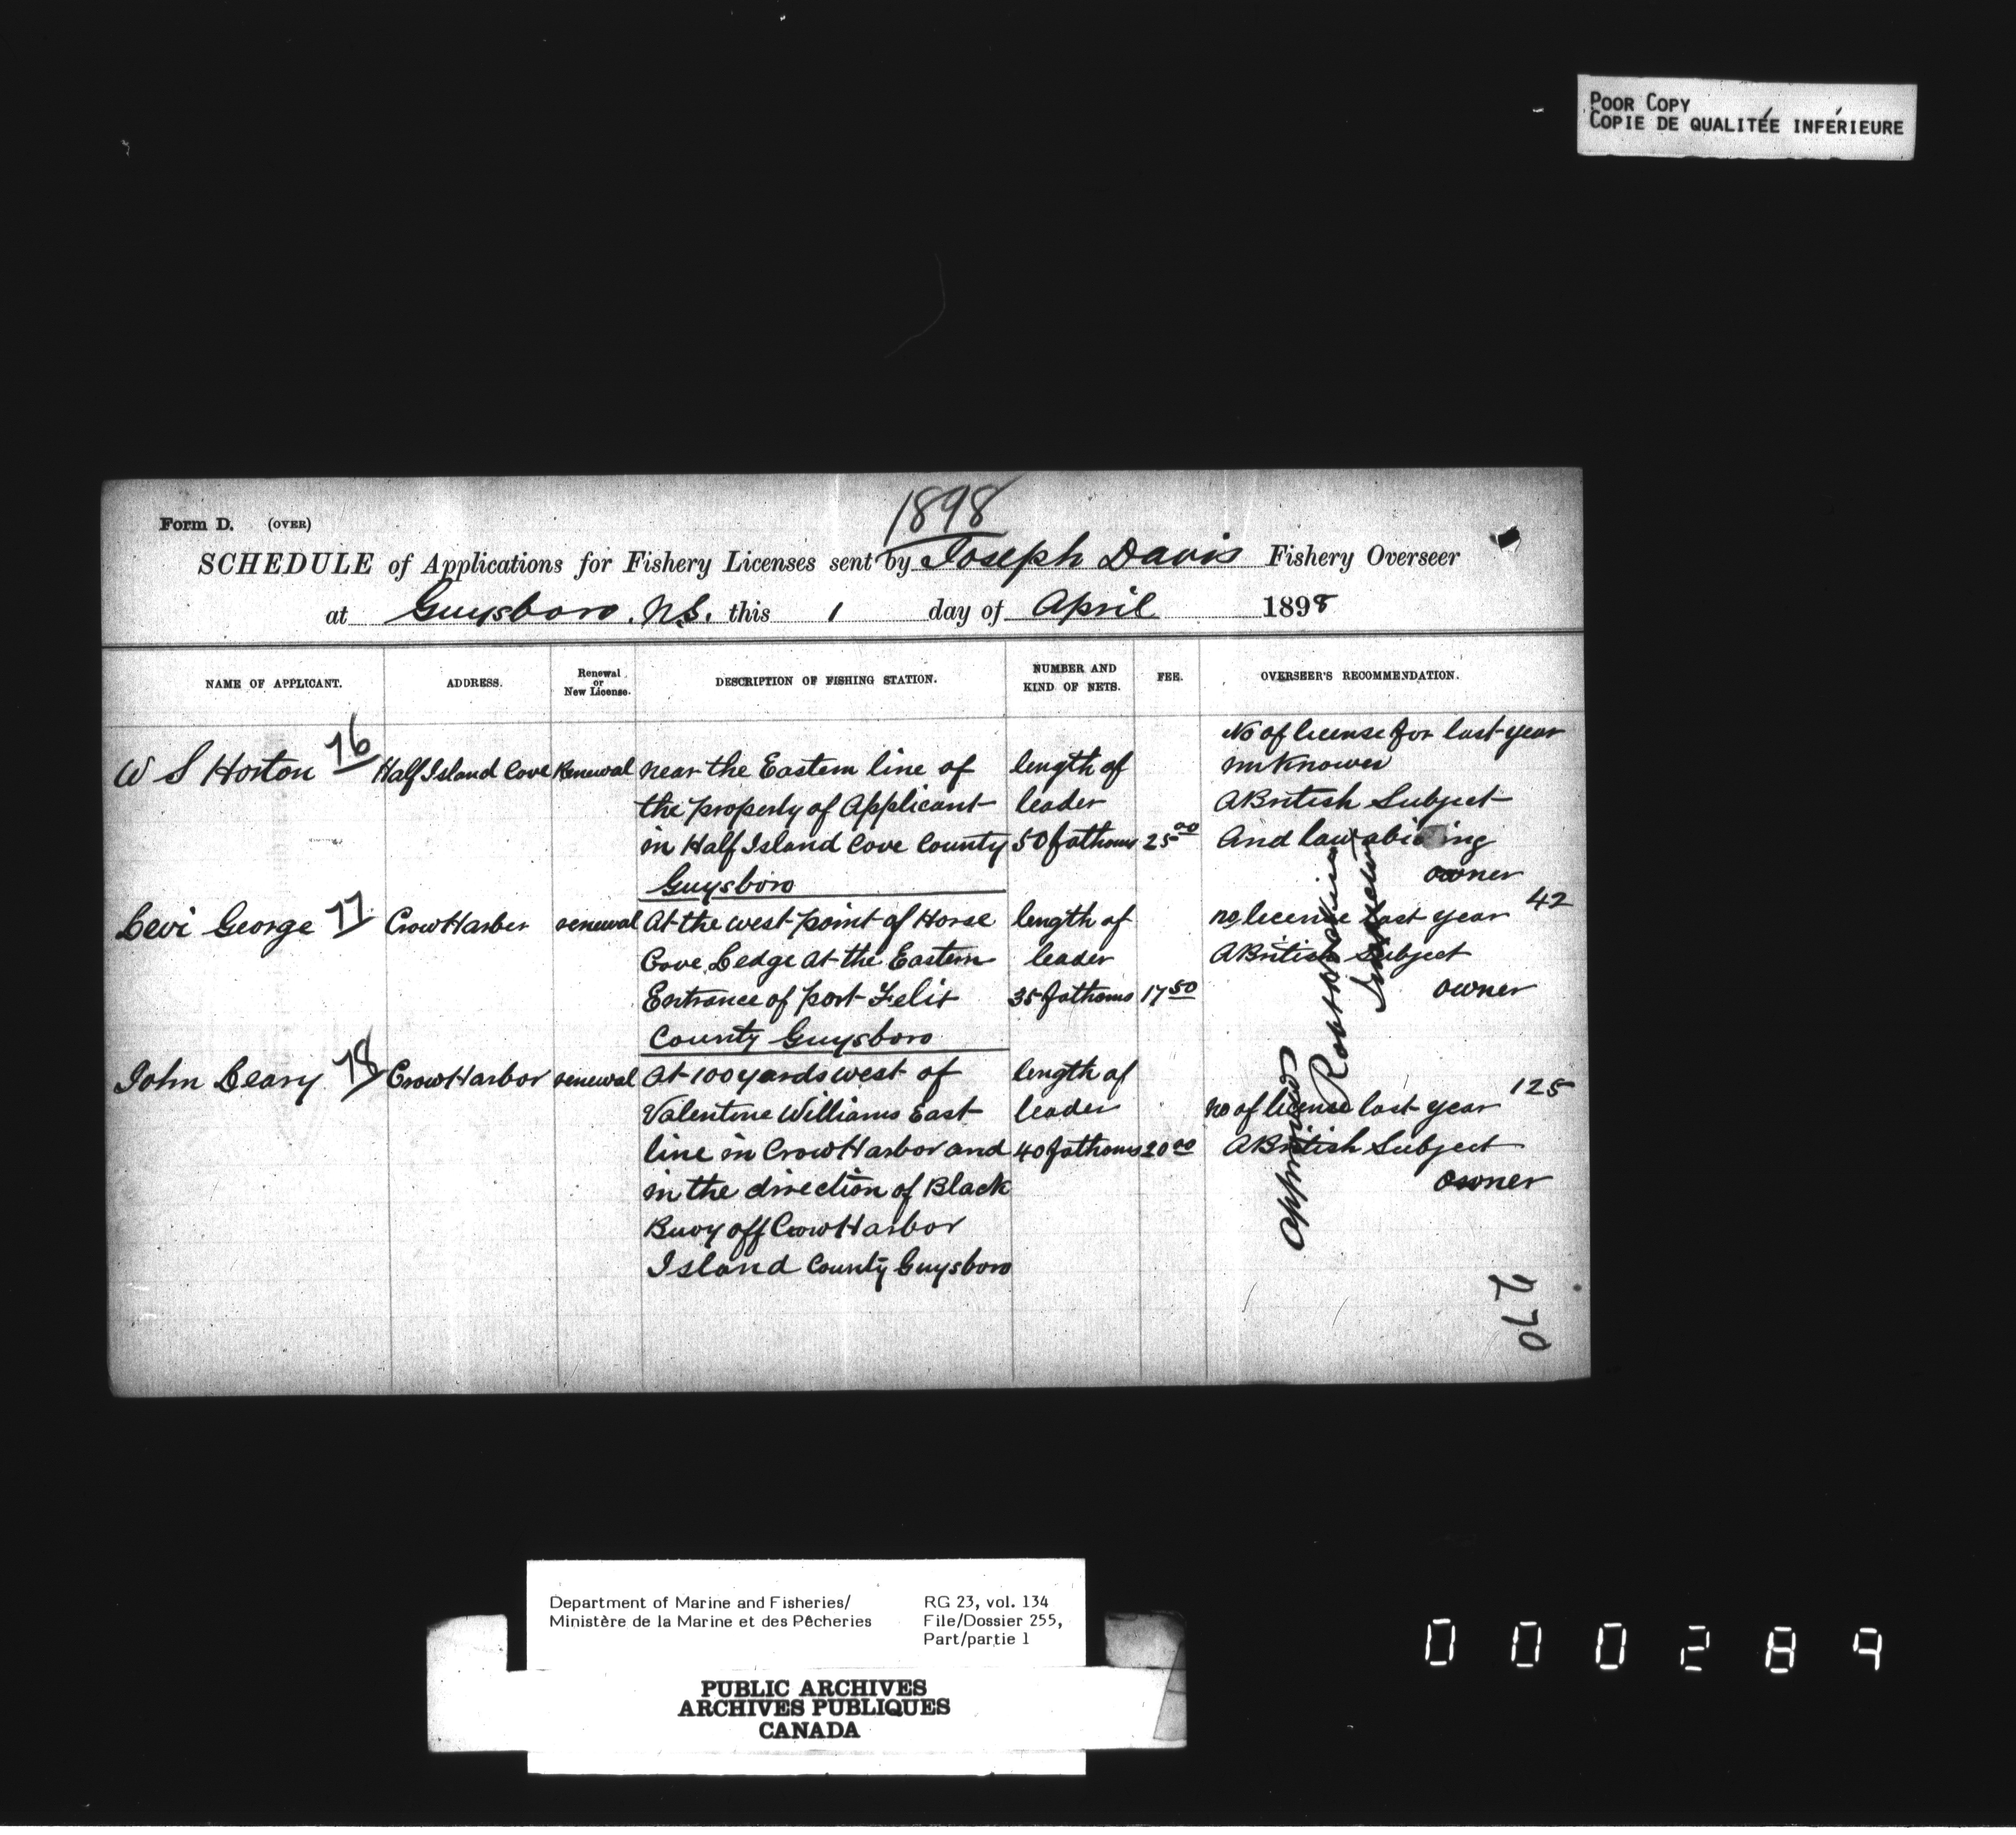 POOR COPY
COPIE DE QUALITÉE INFÉRIEURE
1898
Form D. (OVER)
SCHEDULE of Applications for Fishery Licenses sent by Joseph Davis Fishery Overseer
at Guysboro. N.S. this 1 day of April 1898
NAME OF APPLICANT. ADDRESS. Renewal or New License. DESCRIPTION OF FISHING STATION. NUMBER AND KIND OF NETS. FEE. OVERSEER'S RECOMMENDATION.
No of license for last year
W S Horton 76 Half Island Cove Renewal near the Eastern line of length of unknown
the property of Applicant leader A British Subject
in Half Island Cove County 50 fathoms 25 00 And law abiding
Guysboro owner
Levi George 77 Crow Harber renewal At the west point of Horse length of no license last year 42
Cove Ledge at the Eastern leader A British Subject
Entrance of port Felix 35 fathoms 17 50 owner
County Guysboro
John Leary 78 Crow Harbor renewal At 100 yards west of length of
Valentine Williams East leader no of license last year 125
line in Crow Harbor and 40 fathoms 20 00 A British Subject
in the direction of Black owner
Buoy off Crow Harbor
Island County Guysboro
Approved
Inspector
270
Department of Marine and Fisheries/ RG 23, vol. 134
Ministère de la Marine et des Pêcheries File/Dossier 255,
Part/partie 1
PUBLIC ARCHIVES
ARCHIVES PUBLIQUES
CANADA
000289